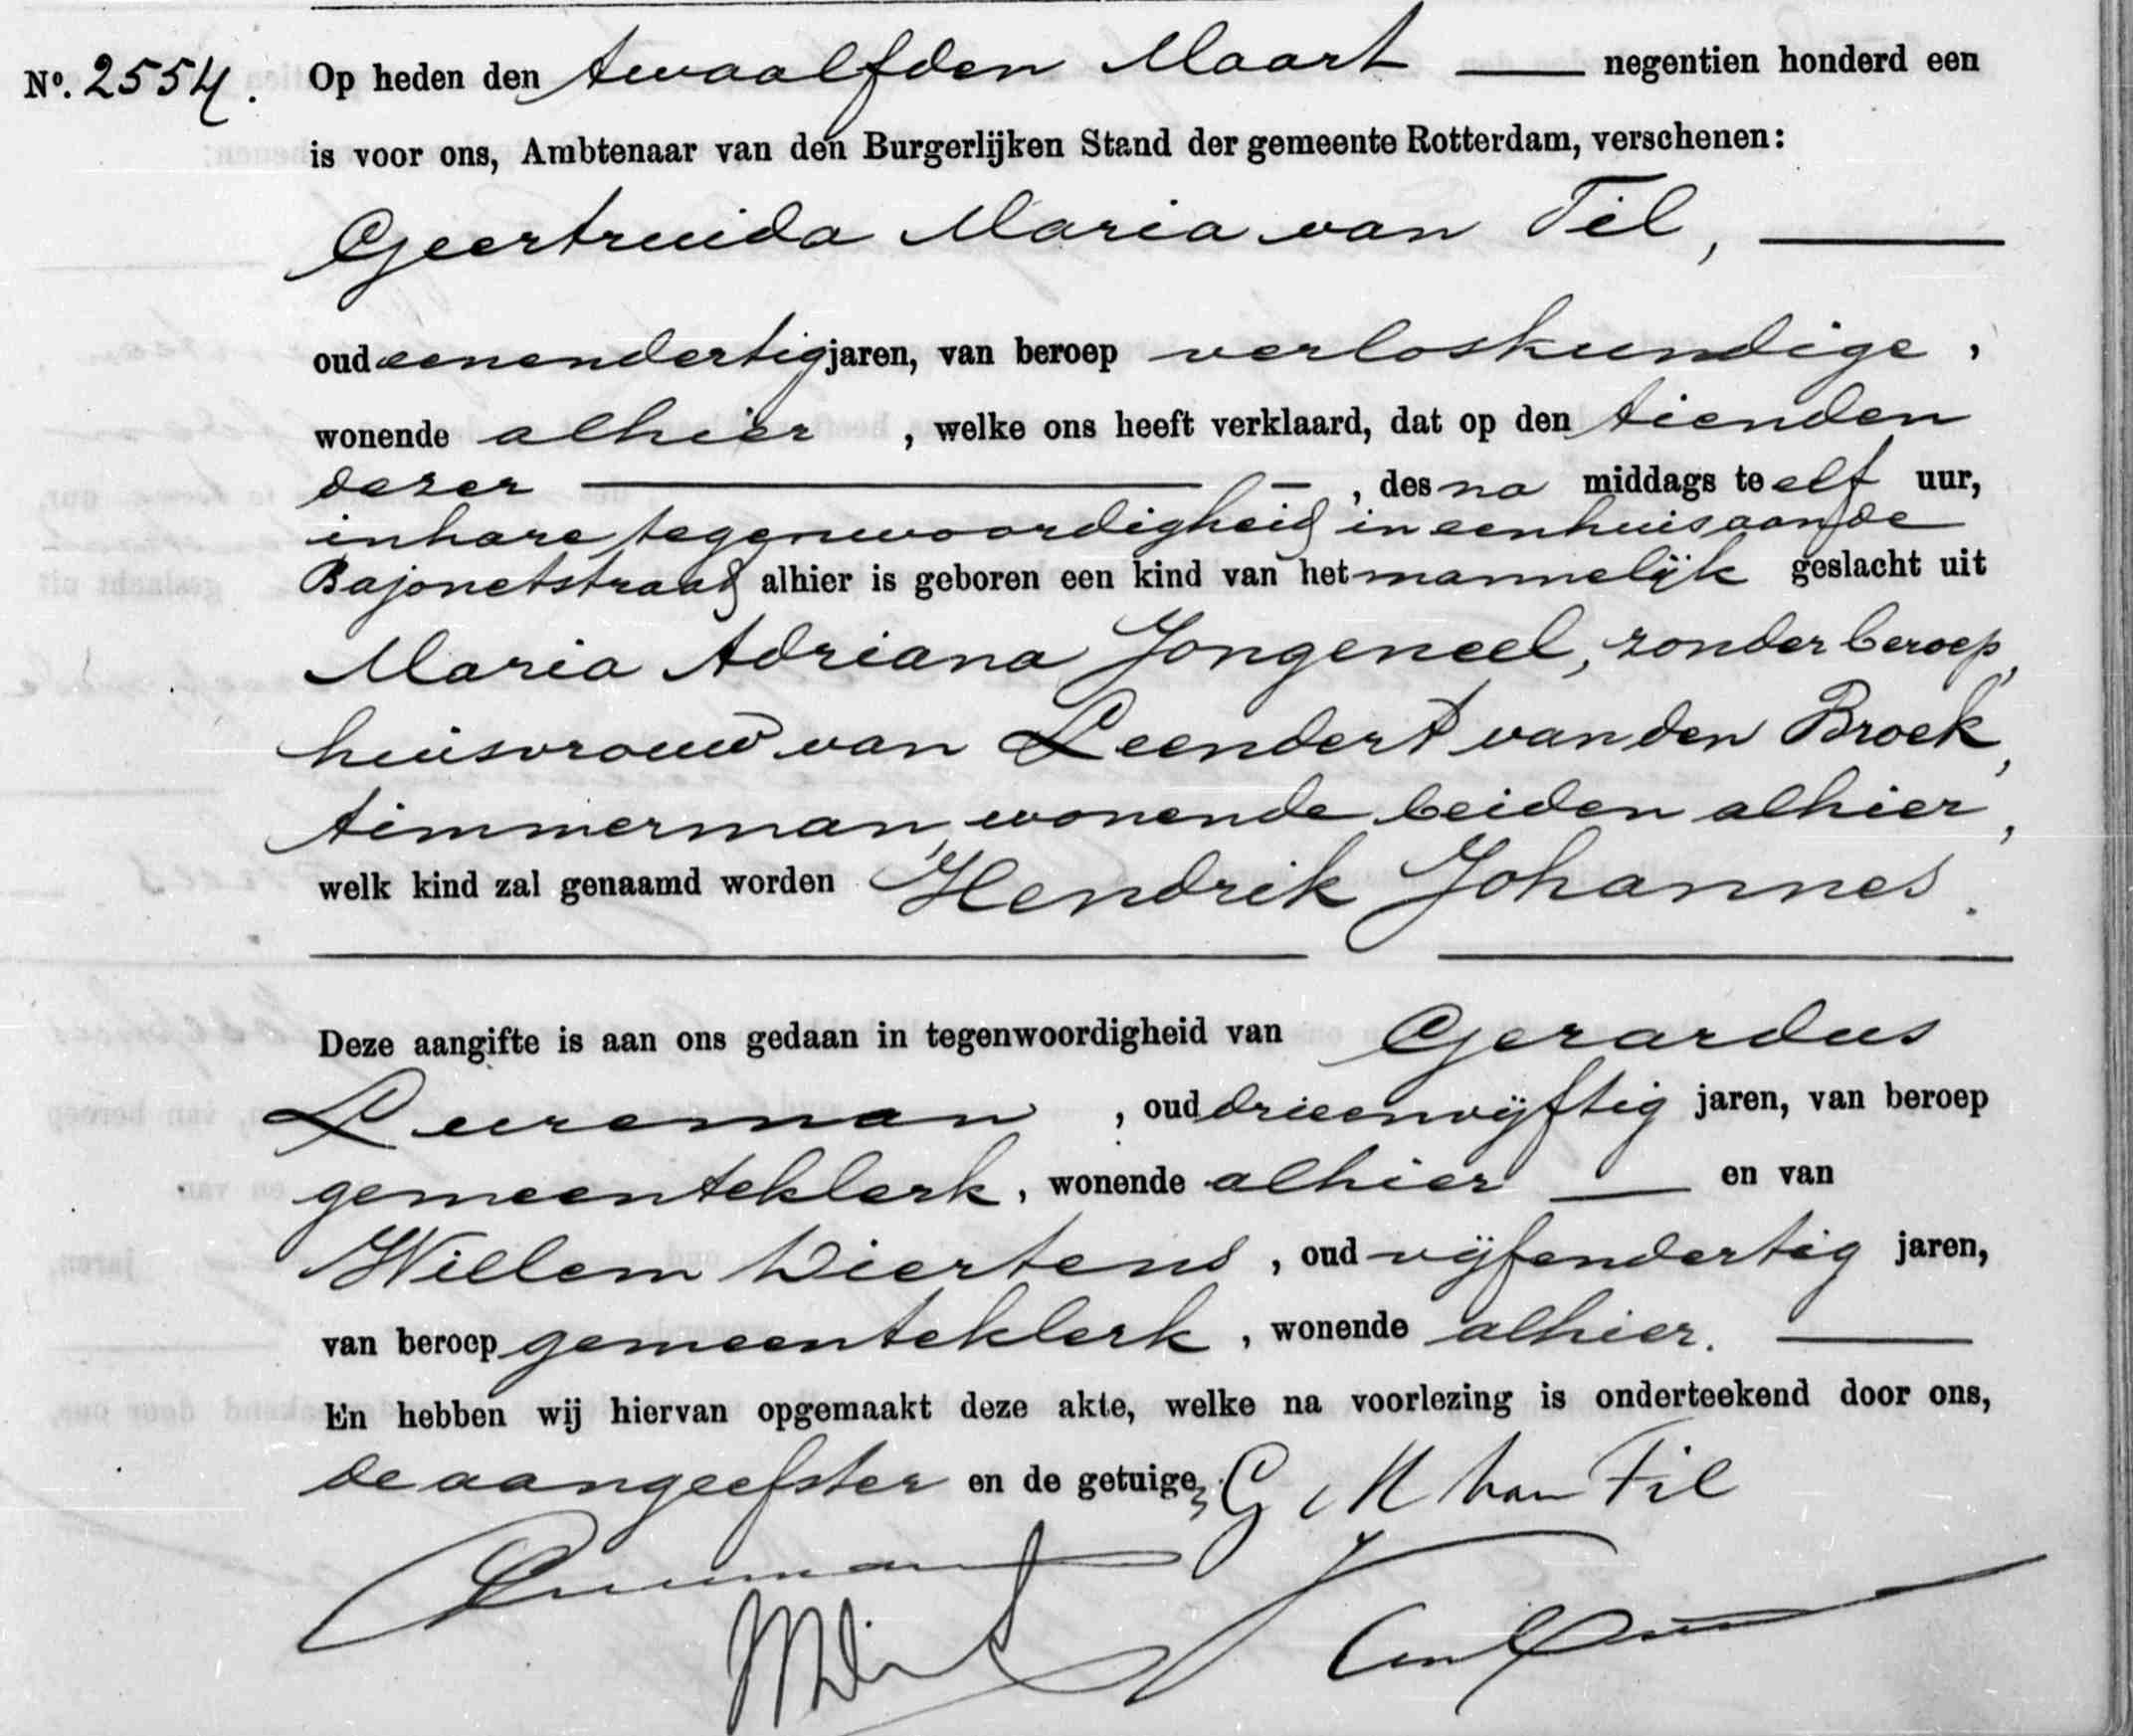 No. 2554. Op heden den twaalfden Maart — negentien honderd een
is voor ons, Ambtenaar van den Burgerlijken Stand der gemeente Rotterdam, verschenen:
Geertruida Maria van Til, —
oud eenendertig jaren, van beroep verloskundige,
wonende alhier, welke ons heeft verklaard, dat op den tienden
dezer — , des na middags te elf uur,
in hare tegenwoordigheid in een huis aan de
Bajonetstraat alhier is geboren een kind van het mannelijk geslacht uit
Maria Adriana Jongeneel, zonder beroep,
huisvrouw van Leendert van den Broek,
timmerman, wonende beiden alhier,
welk kind zal genaamd worden Hendrik Johannes.
Deze aangifte is aan ons gedaan in tegenwoordigheid van Gerardus
Leureman, oud drieenvijftig jaren, van beroep
gemeenteklerk, wonende alhier — en van
Willem Wiertens, oud vijfendertig jaren,
van beroep gemeenteklerk, wonende alhier. —
En hebben wij hiervan opgemaakt deze akte, welke na voorlezing is onderteekend door ons,
de aangeefster en de getuigen. G M van Til